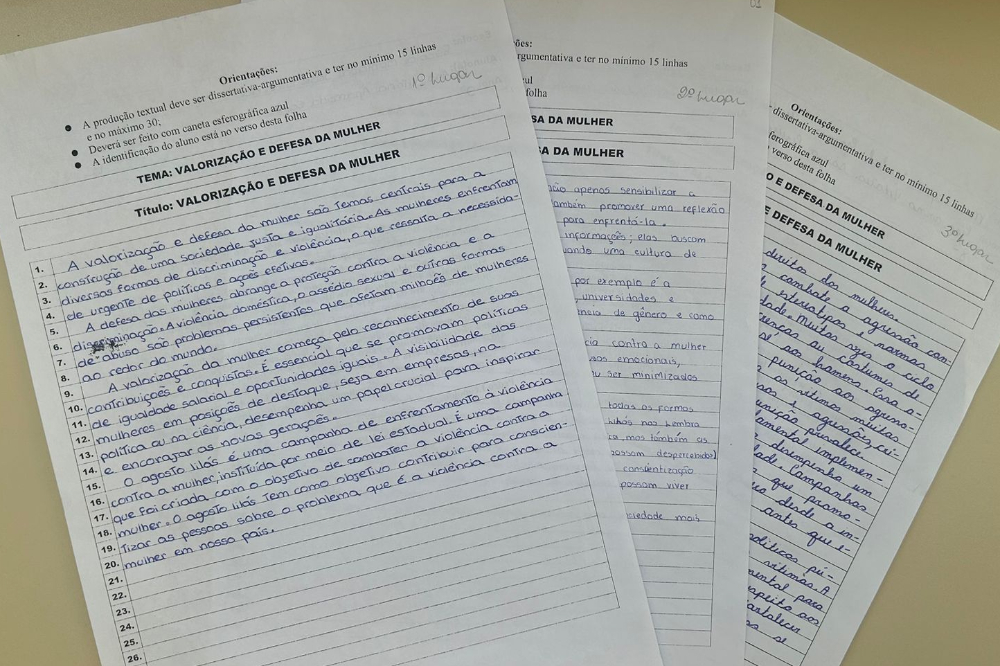 Orientações:
A produção textual deve ser dissertativa-argumentativa e ter no mínimo 15 linhas
e no máximo 30;
Deverá ser feito com caneta esferográfica azul
A identificação do aluno está no verso desta folha
1º Lugar
TEMA: VALORIZAÇÃO E DEFESA DA MULHER
Título: VALORIZAÇÃO E DEFESA DA MULHER
1. A valorização e defesa da mulher são temas centrais para a
2. construção de uma sociedade justa e igualitária. As mulheres enfrentam
3. diversas formas de discriminação e violência, o que ressalta a necessida-
4. de urgente de políticas e ações efetivas.
5. A defesa das mulheres abrange a proteção contra a violência e a
6. discriminação. A violência doméstica, o assédio sexual e outras formas
7. de abuso são problemas persistentes que afetam milhões de mulheres
8. ao redor do mundo.
9. A valorização da mulher começa pelo reconhecimento de suas
10. contribuições e conquistas. É essencial que se promovam políticas
11. de igualdade salarial e oportunidades iguais. A visibilidade das
12. mulheres em posições de destaque, seja em empresas, na
13. política ou na ciência, desempenha um papel crucial para inspirar
14. e encorajar as novas gerações.
15. O agosto lilás é uma campanha de enfrentamento à violência
16. contra a mulher, instituída por meio de lei estadual. É uma campanha
17. que foi criada com o objetivo de combater a violência contra a
18. mulher. O agosto lilás tem como objetivo contribuir para conscien-
19. tizar as pessoas sobre o problema que é a violência contra a
20. mulher em nosso país.
21.
22.
23.
24.
25.
26.
01
ões:
gumentativa e ter no mínimo 15 linhas
folha
2º Lugar
SA DA MULHER
SA DA MULHER
não apenas sensibilizar a
também promover uma reflexão
para enfrentá-la.
informações; elas buscam
uma cultura de
por exemplo é a
universidades e
de gênero e como
contra a mulher
emocionais,
ser minimizados
todas as formas
mas também as
possam despercebidos)
conscientização
possam viver
sociedade mais
Orientações:
dissertativa-argumentativa e ter no mínimo 15 linhas
esferográfica azul
verso desta folha
3º Lugar
O E DEFESA DA MULHER
E DEFESA DA MULHER
direitos das mulheres.
combate a agressão con-
estereótipos e normas
Muitas vezes o ciclo
crenças ou costumes de
aos homens. Essa
punição aos
as vítimas muitas
e agressões,
prevalece.
implemen-
desempenha um
Campanhas
que promo-
desde a in-
antes que
políticas pú-
vítimas. A
mental para
respeito aos
fortalecer
se